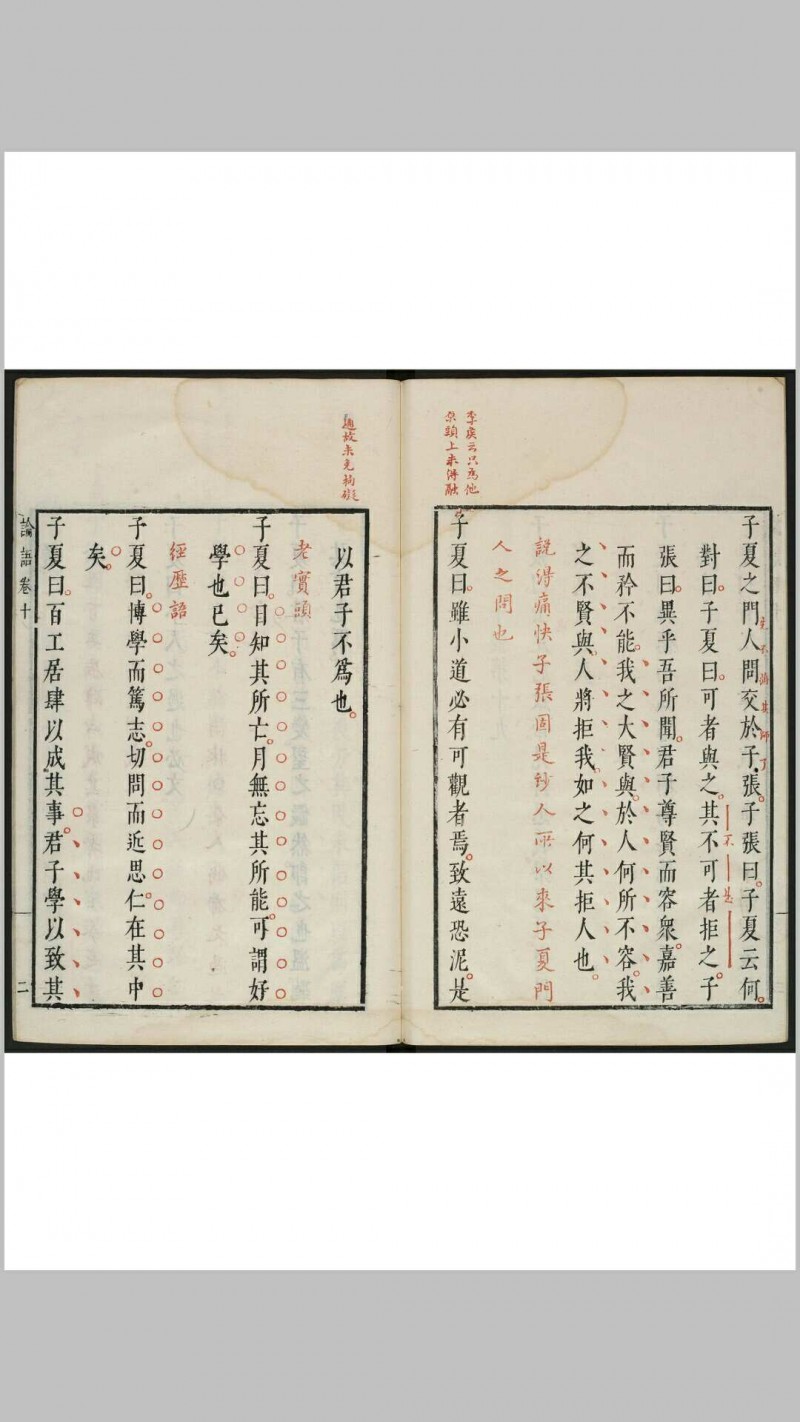 李夷云只爲他
源頭上來得融
子夏之門人問交於子張子張曰子夏云何
主不滿其師了
對曰子夏曰可者與之其不可者拒之子
不是
張曰異乎吾所聞君子尊賢而容衆嘉善
而矜不能我之大賢與於人何所不容我
之不賢與人將拒我如之何其拒人也
說得痛快子張固是妙人所以來子夏門
人之問也
子夏曰雖小道必有可觀者焉致遠恐泥是
通故未免拘礙
以君子不爲也
老實頭
子夏曰日知其所亡月無忘其所能可謂好
學也已矣
經歷語
子夏曰博學而篤志切問而近思仁在其中
矣
子夏曰百工居肆以成其事君子學以致其
論語卷十
二